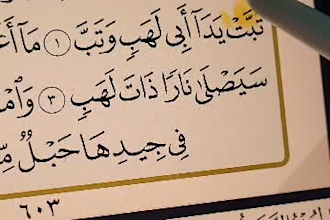 تَبَّتْ يَدَآ أَبِى لَهَبٍ وَتَبَّ ١ مَآ
سَيَصْلَىٰ نَارًا ذَاتَ لَهَبٍ ٣
فِى جِيدِهَا حَبْلٌ
٦٠٣